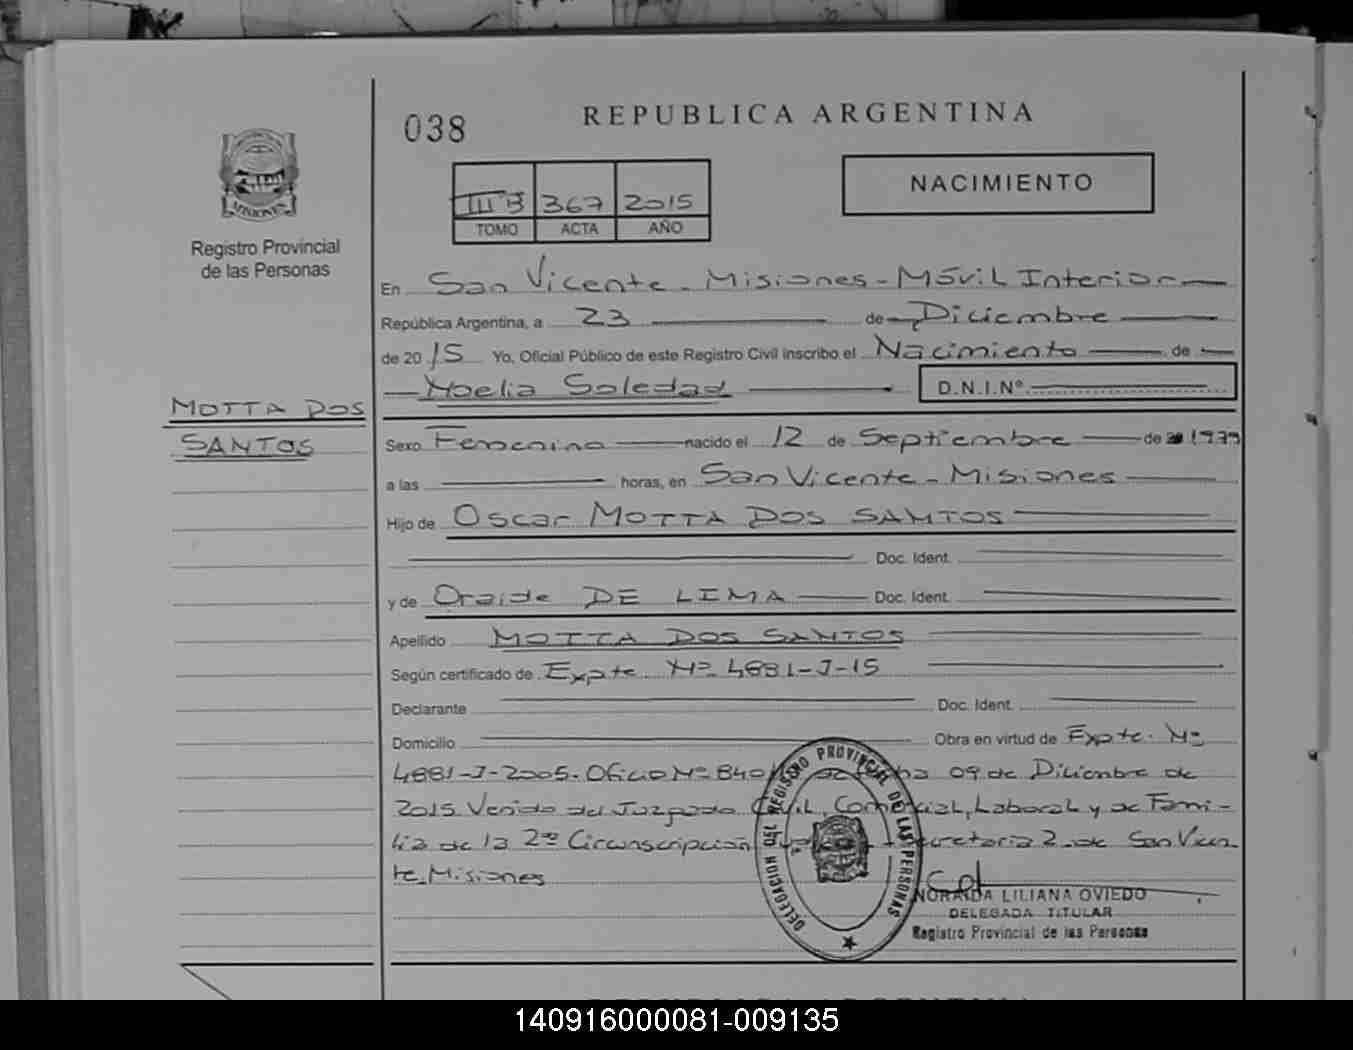 038
REPUBLICA ARGENTINA
NACIMIENTO
MISIONES
Registro Provincial
de las Personas
III B 367 2015
TOMO ACTA AÑO
En San Vicente - Misiones - Móvil Interior
República Argentina, a 23 de Diciembre
de 2015 Yo, Oficial Público de este Registro Civil inscribo el Nacimiento de
Noelia Soledad D.N.I.Nº
MOTTA DOS
SANTOS
Sexo Femenino nacido el 12 de Septiembre de 1979
a las horas, en San Vicente - Misiones
Hijo de Oscar MOTTA DOS SANTOS
Doc. Ident.
y de Oraide DE LIMA Doc. Ident.
Apellido MOTTA DOS SANTOS
Según certificado de Expte. Nº 4881-J-15
Declarante Doc. Ident.
Domicilio Obra en virtud de Expte. Nº
4881-J-2005. Oficio Nº 840 09 de Diciembre de
2015 Venido del Juzgado Civil, Comercial, Laboral y de Fami-
lia de la 2da Circunscripción Secretaria 2 de San Vicen
te Misiones
DELEGACION DEL REGISTRO PROVINCIAL DE LAS PERSONAS
NORAIDA LILIANA OVIEDO
DELEGADA TITULAR
Registro Provincial de las Personas
140916000081-009135